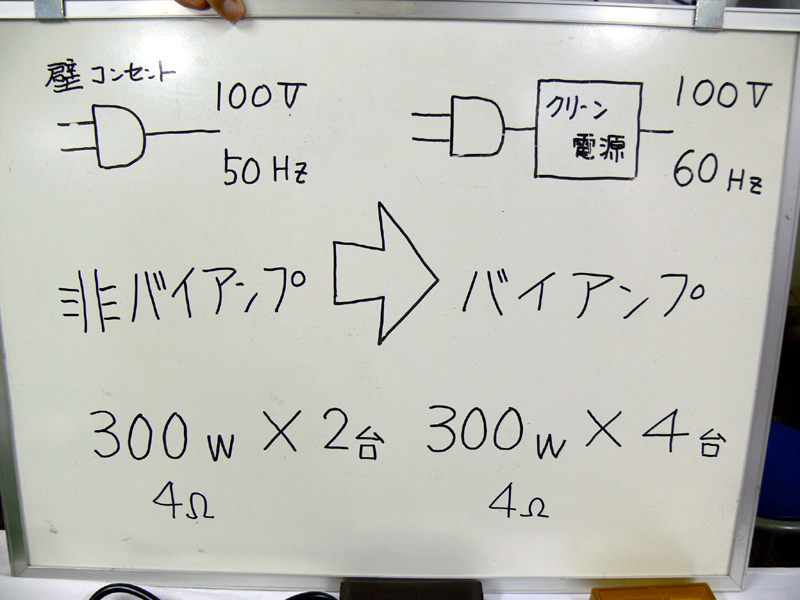 壁コンセント
100V
50Hz
クリーン
電源
100V
60Hz
非バイアンプ
バイアンプ
300W×2台
4Ω
300W×4台
4Ω